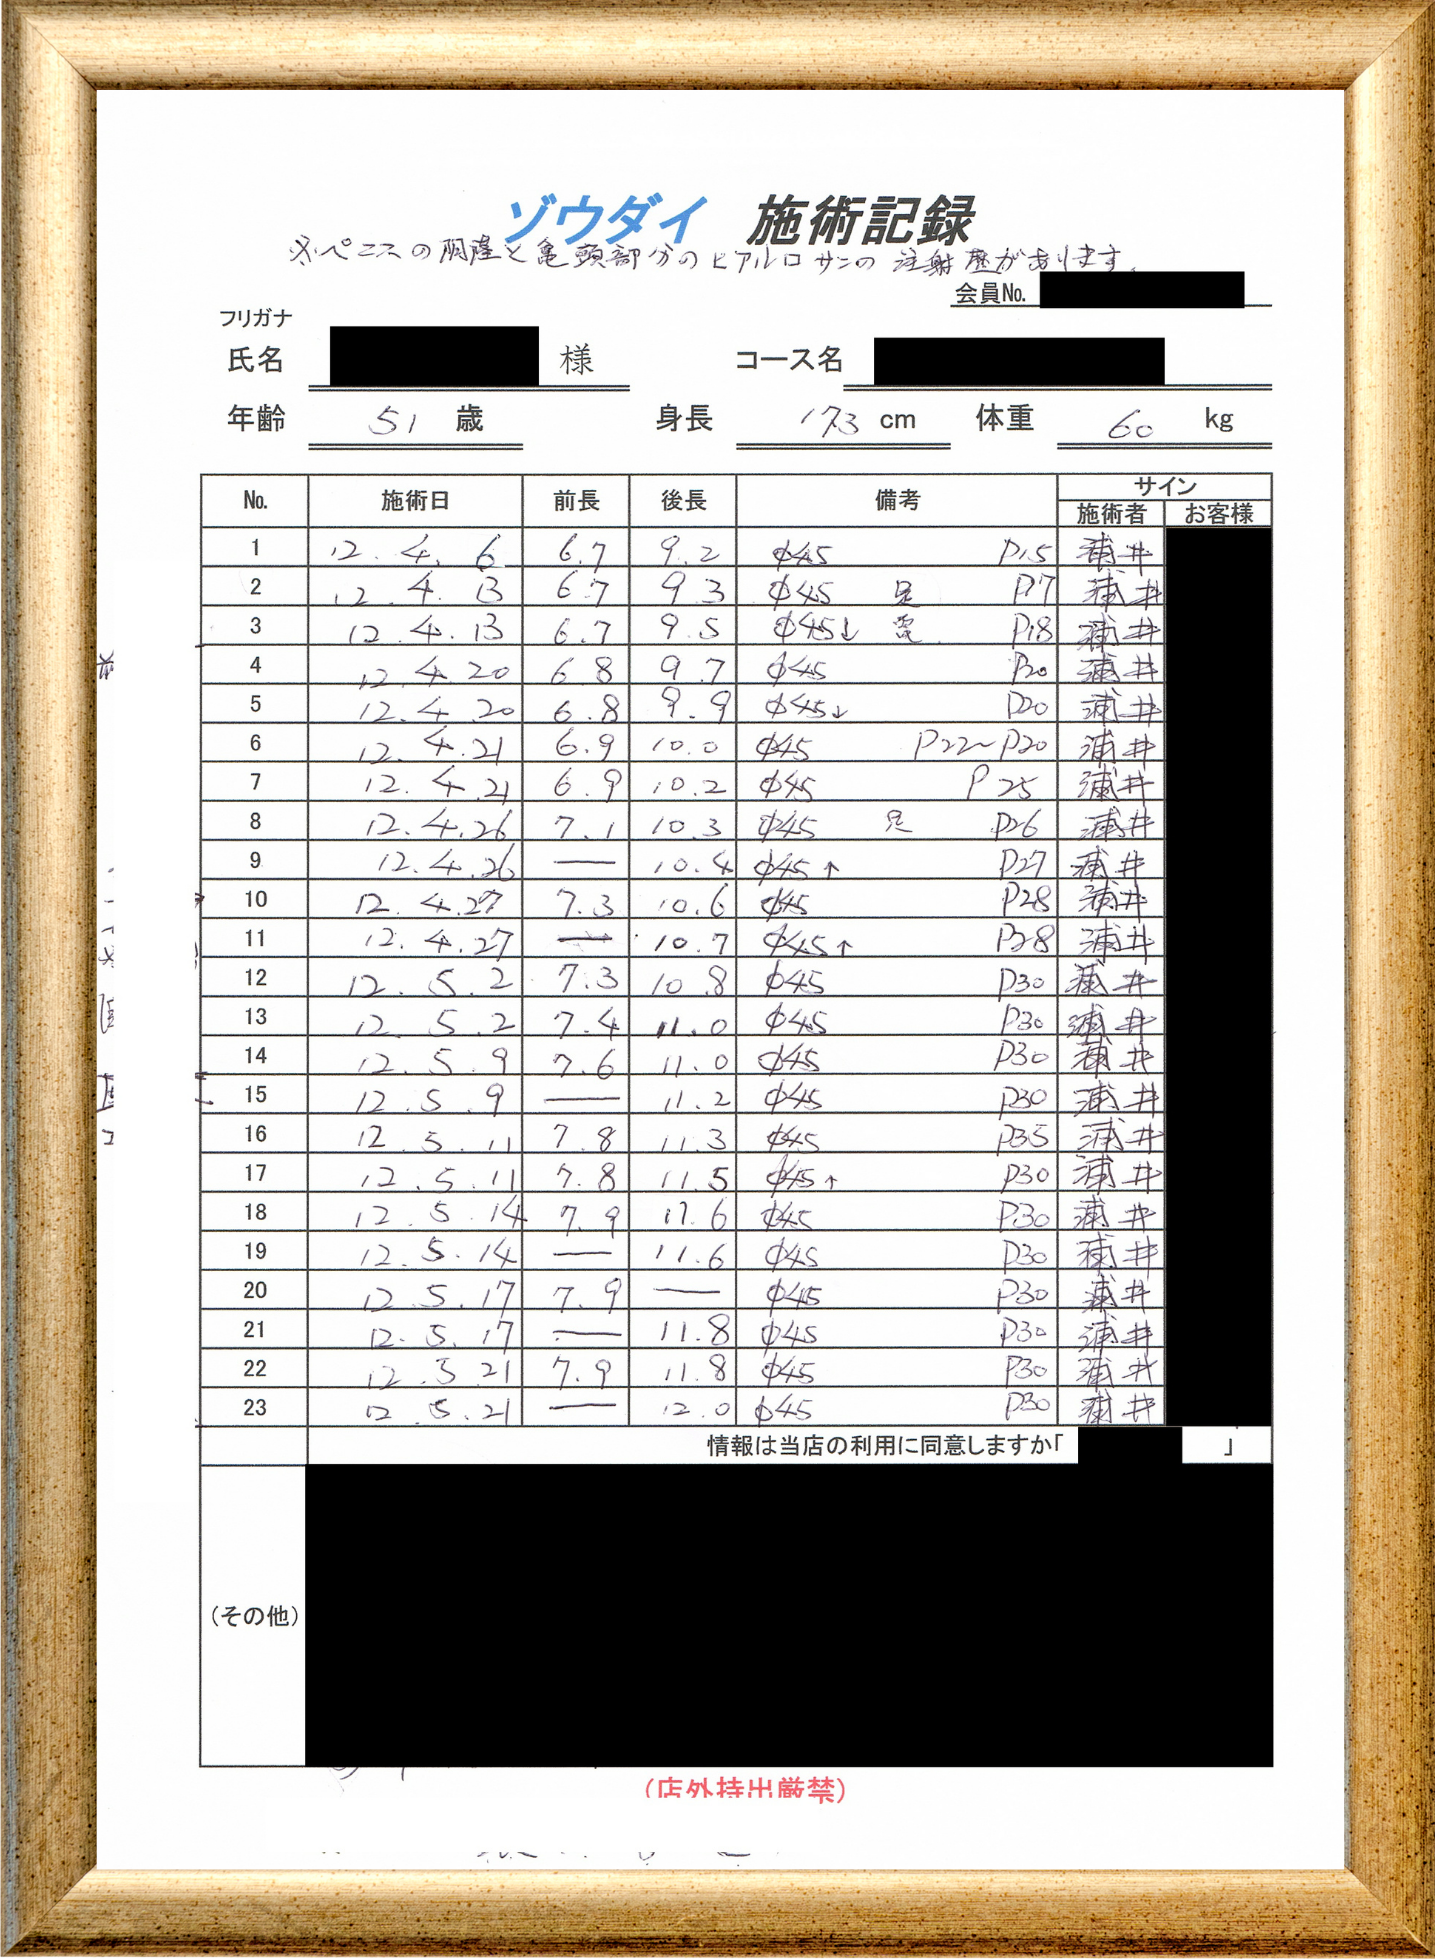 ゾウダイ 施術記録
※ペニスの陰茎と亀頭部分のヒアルロサンの注射歴があります。
会員No.
フリガナ
氏名 様 コース名
年齢 51 歳 身長 173 cm 体重 60 kg
No. 施術日 前長 後長 備考 サイン
施術者 お客様
1 12.4.6 6.7 9.2 φ45 P15 浦井
2 12.4.13 6.7 9.3 φ45 足 P17 浦井
3 12.4.13 6.7 9.5 φ45↓ P18 浦井
4 12.4.20 6.8 9.7 φ45 P20 浦井
5 12.4.20 6.8 9.9 φ45↓ P20 浦井
6 12.4.21 6.9 10.0 φ45 P22~P20 浦井
7 12.4.21 6.9 10.2 φ45 P25 浦井
8 12.4.26 7.1 10.3 φ45 足 P26 浦井
9 12.4.26 — 10.4 φ45↑ P27 浦井
10 12.4.27 7.3 10.6 φ45 P28 浦井
11 12.4.27 — 10.7 φ45↑ P28 浦井
12 12.5.2 7.3 10.8 φ45 P30 浦井
13 12.5.2 7.4 11.0 φ45 P30 浦井
14 12.5.9 7.6 11.0 φ45 P30 浦井
15 12.5.9 — 11.2 φ45 P30 浦井
16 12.5.11 7.8 11.3 φ45 P35 浦井
17 12.5.11 7.8 11.5 φ45↑ P30 浦井
18 12.5.14 7.9 11.6 φ45 P30 浦井
19 12.5.14 — 11.6 φ45 P30 浦井
20 12.5.17 7.9 — φ45 P30 浦井
21 12.5.17 — 11.8 φ45 P30 浦井
22 12.5.21 7.9 11.8 φ45 P30 浦井
23 12.5.21 — 12.0 φ45 P30 浦井
情報は当店の利用に同意しますか「 」
（その他）
（店外持出厳禁）